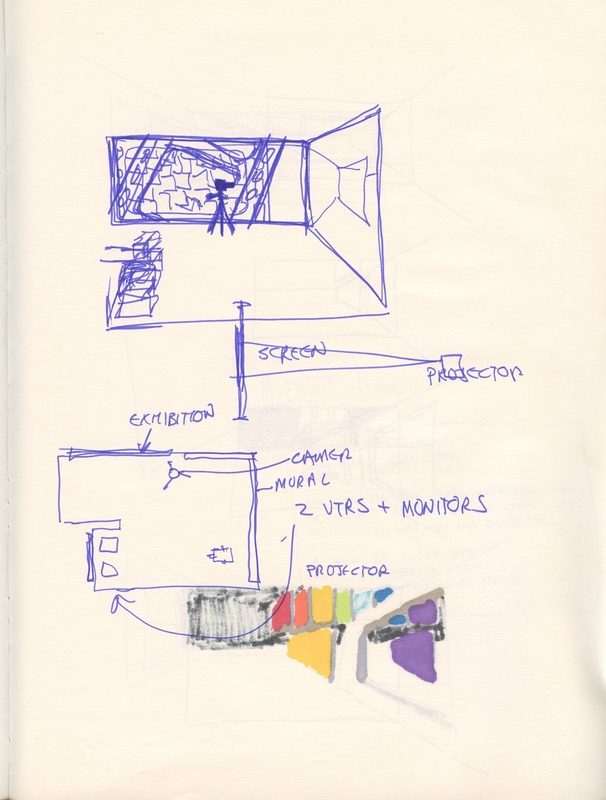 SCREEN
PROJECTOR
EXHIBITION
CAMER
MURAL
2 VTRS + MONITORS
PROJECTOR